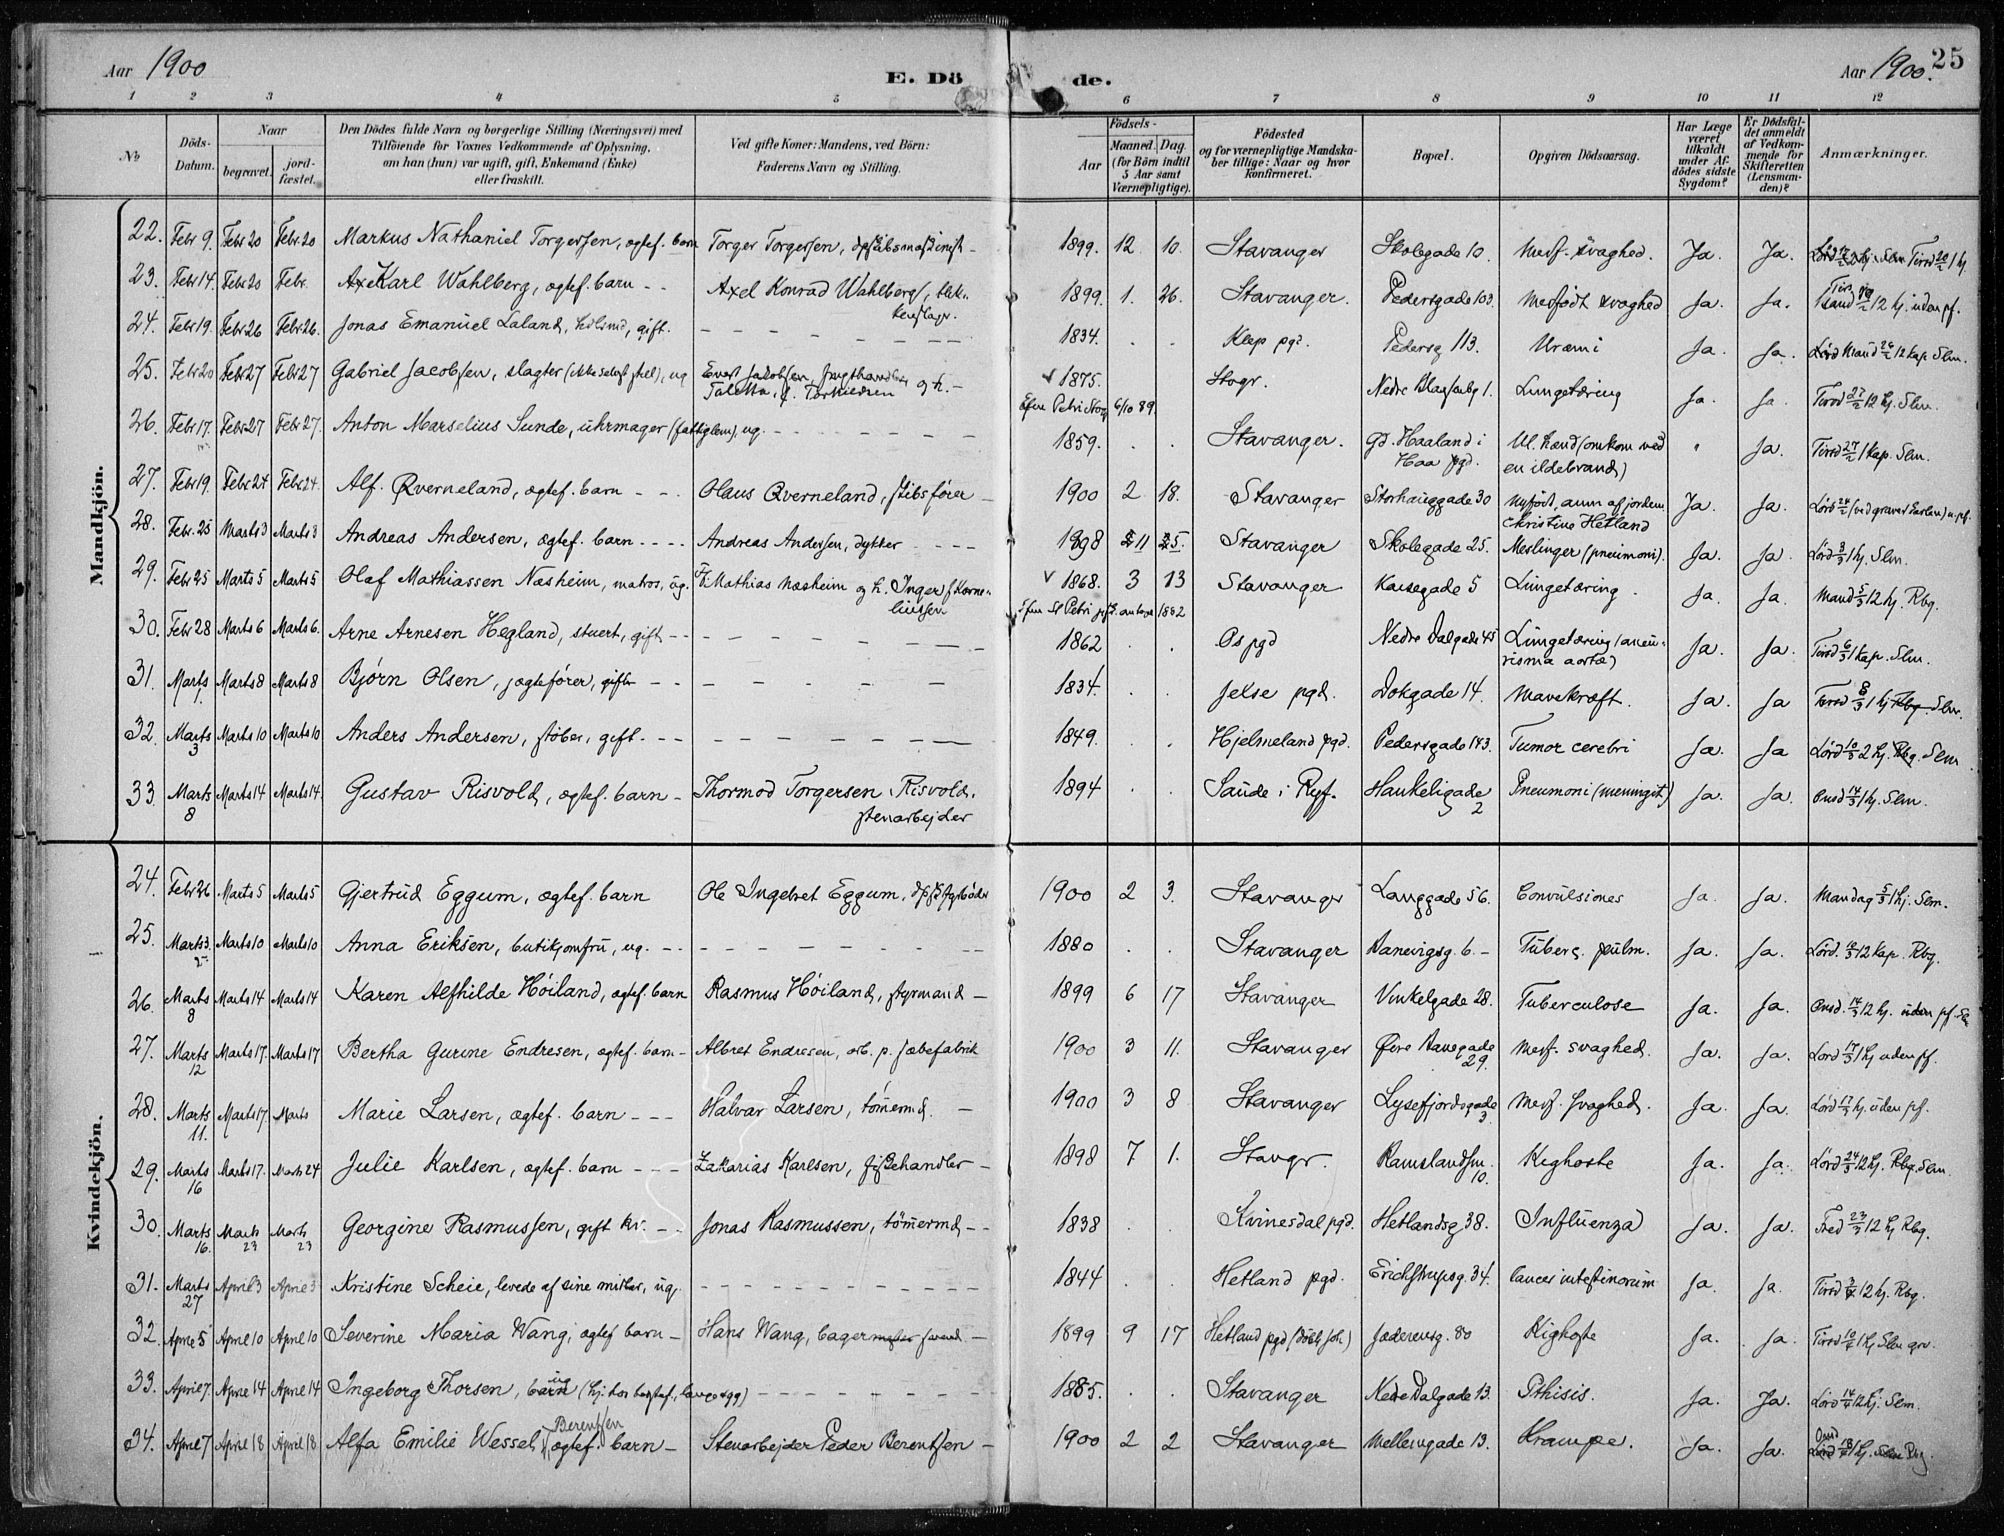 Aar 1900
E. Dö de.
Aar 1900.
25
1 2 3 4 5 6 7 8 9 10 11 12
No
Döds-Datum.
Naar
begravet.
jord-fæstet.
Den Dödes fulde Navn og borgerlige Stilling (Næringsvei) med
Tilföiende for Voxnes Vedkommende af Oplysning,
om han (hun) var ugift, gift, Enkemand (Enke)
eller fraskilt.
Ved gifte Koner: Mandens, ved Börn:
Faderens Navn og Stilling.
Födsels-
Aar
Maaned.
Dag.
(for Börn indtil
5 Aar samt
Værnepligtige).
Födested
og for værnepligtige Mandska-
ber tillige: Naar og hvor
konfirmeret.
Bopæl.
Opgiven Dödsaarsag.
Har Læge
været
tilkaldt
under Af-
dödes sidste
Sygdom?
Er Dödsfal-
det anmeldt
af Vedkom-
mende for
Skifteretten
(Lensman-
den)?
Anmærkninger.
Mandkjön.
22. Febr 9. Febr 20 Febr 20 Markus Nathaniel Torgersen, ægtef. barn Torger Torgersen, 1899. 12. 10. Stavanger Skolegade 10. Medf. svaghed. Ja. Ja.
23. Febr 14. Febr 20 Febr. Axel Karl Wahlberg, ægtef. barn - - Axel Konrad Wahlberg, 1899. 1. 26. Stavanger. Pedersgade 103. Medfødt svaghed Ja. Ja. 12 kj. uden pf.
24. Febr 19. Febr 26 Febr 26. Jonas Emanuel Laland, gift. 1834. Klep pgd. Pedersg 113. Uræmi Ja. Ja. Mand 26/2 12 kap. Slm.
25. Febr 20 Febr 27 Febr 27 Gabriel Jacobsen, slagter ug Jakobsen, og h. - 1875. Stvgr. Nedre 1. Lungetæring Ja. Ja. Tirsd 27/2 12 kj. Slm.
Petri Stvg 6/10 89.
26. Febr 17. Febr 27 Febr 27. Anton Marselius Sunde, uhrmager (fattiglem), ug. 1859. Stavanger. Gd. Haaland i Ul. hænd (omkom ved " Ja. Tirsd 27/2 1 kap. Slm.
Haa pgd. en ildebrand)
27. Febr 19. Febr 24 Febr 24. Alf. Qverneland, ægtef. barn - - Olaus Qverneland, skibsfører - 1900 2 18. Stavanger Storhauggade 30 Nyfødt, anm. af jordem. Ja. Ja. Lørd 24/2
Christine Hetland
28. Febr. 25 Marts 3 Marts 3 Andreas Andersen, ægtef. barn - - - - Andreas Andersen, dykker 1898 11 25. Stavanger Skolegade 25. Meslinger (pneumoni). Ja. Ja. Lørd 3/3 1 kj. Slm.
29. Febr 25 Marts 5 Marts 5 Olaf Mathiassen Næsheim, matros, ug. Mathias Næsheim og h. Inger f. Korne-
liussen 1868. 3 13 Stavanger Karsegade 5 Lungetæring. Ja. Ja. Mand 5/3 12 kj. Rbg.
30. Febr 28 Marts 6 Marts 6. Arne Arnesen Hegland, stuert, gift - - 1862 Os pgd Nedre Dalgade 45 Lungetæring (aneu-
risma aortæ) Ja. Ja. Tirsd 6/3 1 kap. Slm.
31. Marts 1. Marts 8 Marts 8 Bjørn Olsen, jægtefører, gift - - 1834. Jelse pgd. Dokgade 14. Mavekræft. Ja. Ja 8/3 1 kj Rbg. Slm.
32. Marts 3 Marts 10 Marts 10 Anders Andersen, støber, gift. - - 1849. Hjelmeland pgd. Pedersgade 143. Tumor cerebri Ja. Ja Lørd 10/3 2 kj. Rbg. Slm
33. Marts 8 Marts 14 Marts 14. Gustav Risvold, ægtef. barn - Thormod Torgersen Risvold,
stenarbejder 1894 Saude i Ryf. Haukeligade 2 Pneumoni (meningit) Ja. Ja. Onsd 14/3 1 kj. Slm.
Kvindekjön.
24. Febr 26 Marts 5 Marts 5 Gjertrud Eggum, ægtef. barn Ole Ingebret Eggum, 1900 2 3. Stavanger Langgade 56. Convulsiones Ja. Ja. Mandag 5/3 1 kj. Slm.
25. Marts 3. Marts 10 Marts 10 Anna Eriksen, butikjomfru, ug. - - 1880 Stavanger 6. - Tuberc. pulm. Ja. Ja. Lørd. 10/3 12 kap. Rbg.
26. Marts 8 Marts 14 Marts 14 Karen Alfhilde Høiland, ægtef. barn Rasmus Høiland, styrmand - 1899 6 17 Stavanger Vinkelgade 28. Tuberculose Ja. Ja. Onsd. 14/3 12 kj. uden pf
27. Marts 12 Marts 17. Marts 17 Bertha Gurine Endresen, ægtef. barn - Albret Endresen, arb. p. sæbefabrik 1900 3 11. Stavanger Øvre 29. Medf. svaghed. Ja. Ja. Lørd 17/3 1 kj uden pf.
28. Marts 11. Marts 17. Marts Marie Larsen, ægtef. barn - - - Halvar Larsen, tømermd. - 1900 3 8 Stavanger Lysefjordsgade 3. Medf. svaghed. Ja. Ja. Lørd 17/3 kj. uden pf.
29. Marts 16 Marts 17. Marts 24 Julie Karlsen, ægtef. barn - - - Zakarias Karlsen, fiskehandler - 1898 7 1. Stavgr. 10. Kighoste Ja. Ja. Lørd 24/3 12 kj. Rbg. Slm
30. Marts 16. Marts 23 Marts 23 Georgine Rasmussen, gift kv. - - Jonas Rasmussen, tømermd - - 1838 Kvinesdal pgd. Hetlandsg 38. Influenza Ja. Ja. Fred 23/3 12 kj Rbg.
31. Marts 27 April 3 April 3 Kristine Scheie, levede af sine midler, ug. 1844 Hetland pgd. Erichstrupsg. 34. Cancer intestinorum Ja. Ja. Tirsd 3/4 12 kj. Rbg.
32. April 5 April 10 April 10 Severine Maria Wang, ægtef barn - Hans Wang, bager 1899 9 17 Hetland pgd Jæderensg. 80 Kighoste Ja. Ja. Tirsd 10/4 1 kj Slm
33. April 7. April 14 April 14 Ingeborg Thorsen, barn 1885. Stavanger Nedre Dalgade 13. Pthisis. Ja. Ja. Lørd 14/4 12 kj. Slm.
34. April 7 April 18 April 18 Alfa Emilie Wessel Berentsen ægtef. barn - Stenarbejder Peder Berentsen - 1900 2 2 Stavanger Mellemgade 13. Krampe. Ja. Ja. Onsd 18/4 1 kj. Slm Rbg.